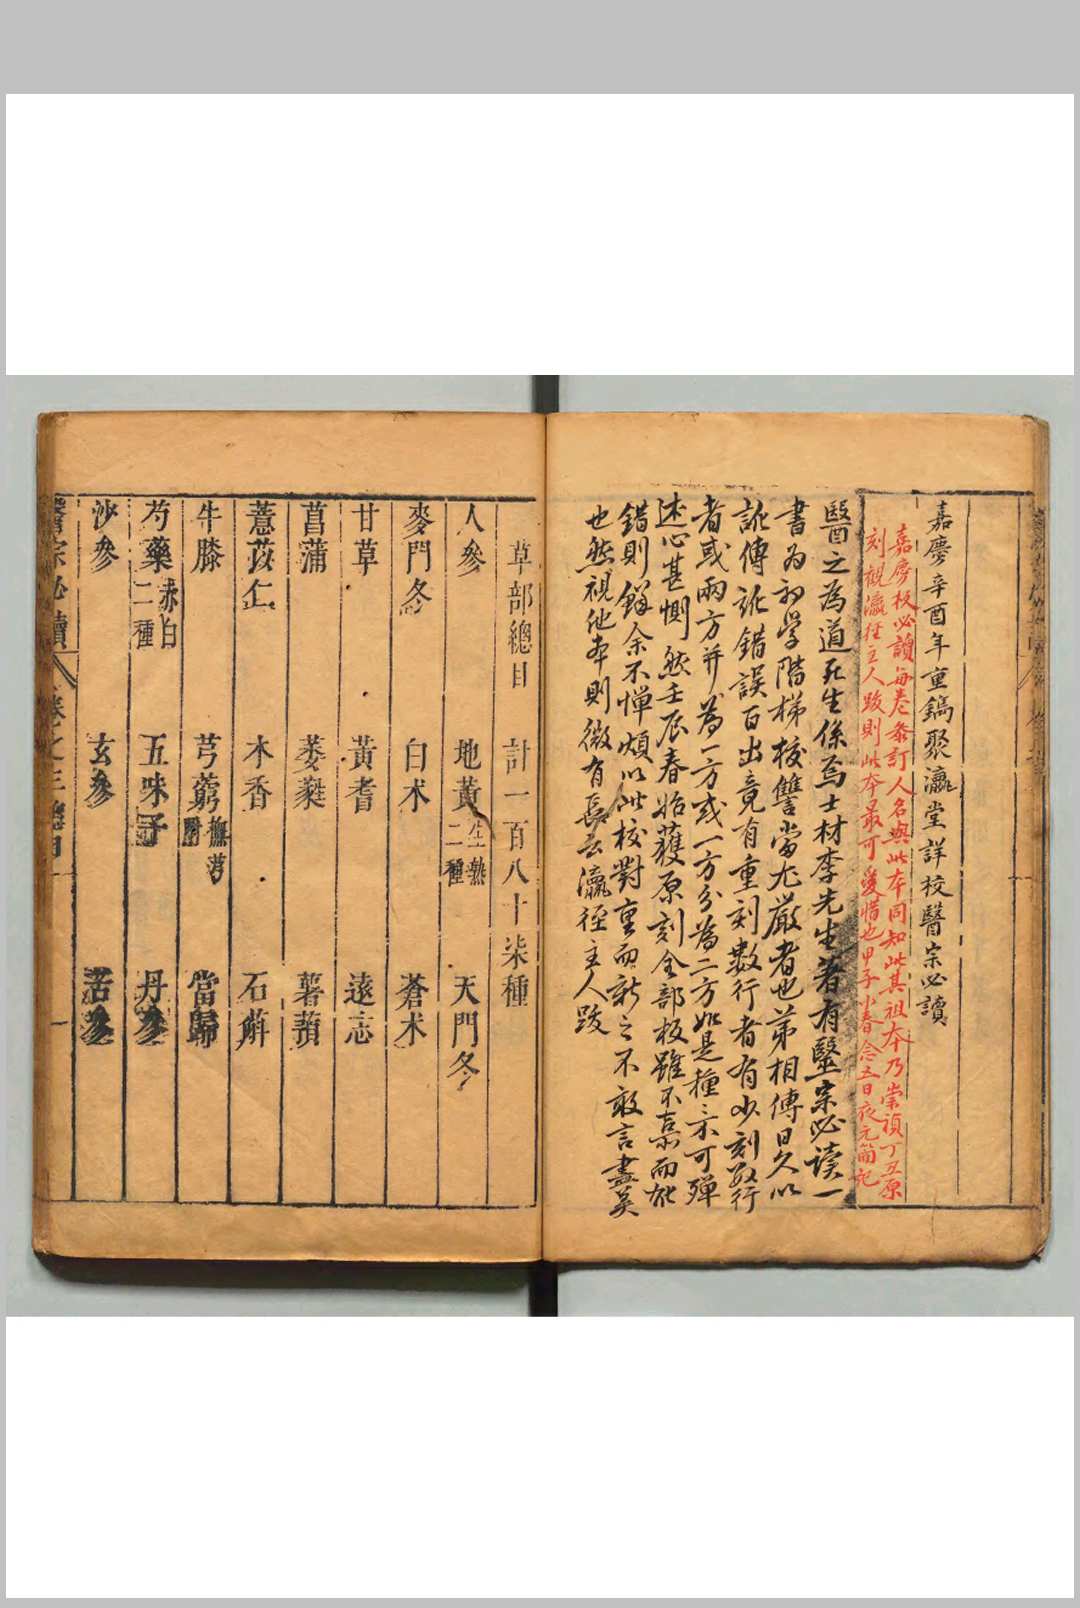 嘉慶辛酉年重鐫聚瀛堂詳校醫宗必讀
嘉慶板必讀每卷叅訂人名與此本同知此其祖本乃崇禎丁丑原
刻觀瀛徑主人跋則此本最可愛惜也甲子小春念五日夜元簡記
醫之為道死生係焉士材李先生著有醫宗必读一
書为初學階梯校讐當尤嚴者也第相傳日久以
訛傳訛錯誤百出竟有重刻數行者有少刻数行
者或兩方并為一方或一方分為二方如是種〻示可殫
述心甚惻然壬辰春始獲原刻全部板雖不甚而能
錯則鐸余不憚煩以此校對重而新之不敢言盡美
也然視他本則微有長云瀛徑主人跋
草部總目 計一百八十柒種
人參 地黃生熟二種 天門冬
麥門冬 白朮 蒼朮
甘草 黃耆 遠志
菖蒲 萎蕤 薯蕷
薏苡仁 木香 石斛
牛膝 芎藭附撫芎 當歸
芍藥赤白二種 五味子 丹參
沙參 玄參 苦參
醫宗必讀 卷之三總目 一